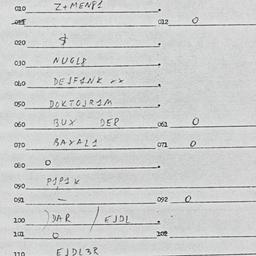 010 Z+MEN81
011 012 0
020 $
030 NUGL8
040 DEJF1NK xx
050 DOKTOJR1M
060 BUX DER 061 0
070 BAXAL1 071 0
080 0
090 P1P1K
091 — 092 0
100 )DAR / EJDL
101 0 102
110 EJDL3R